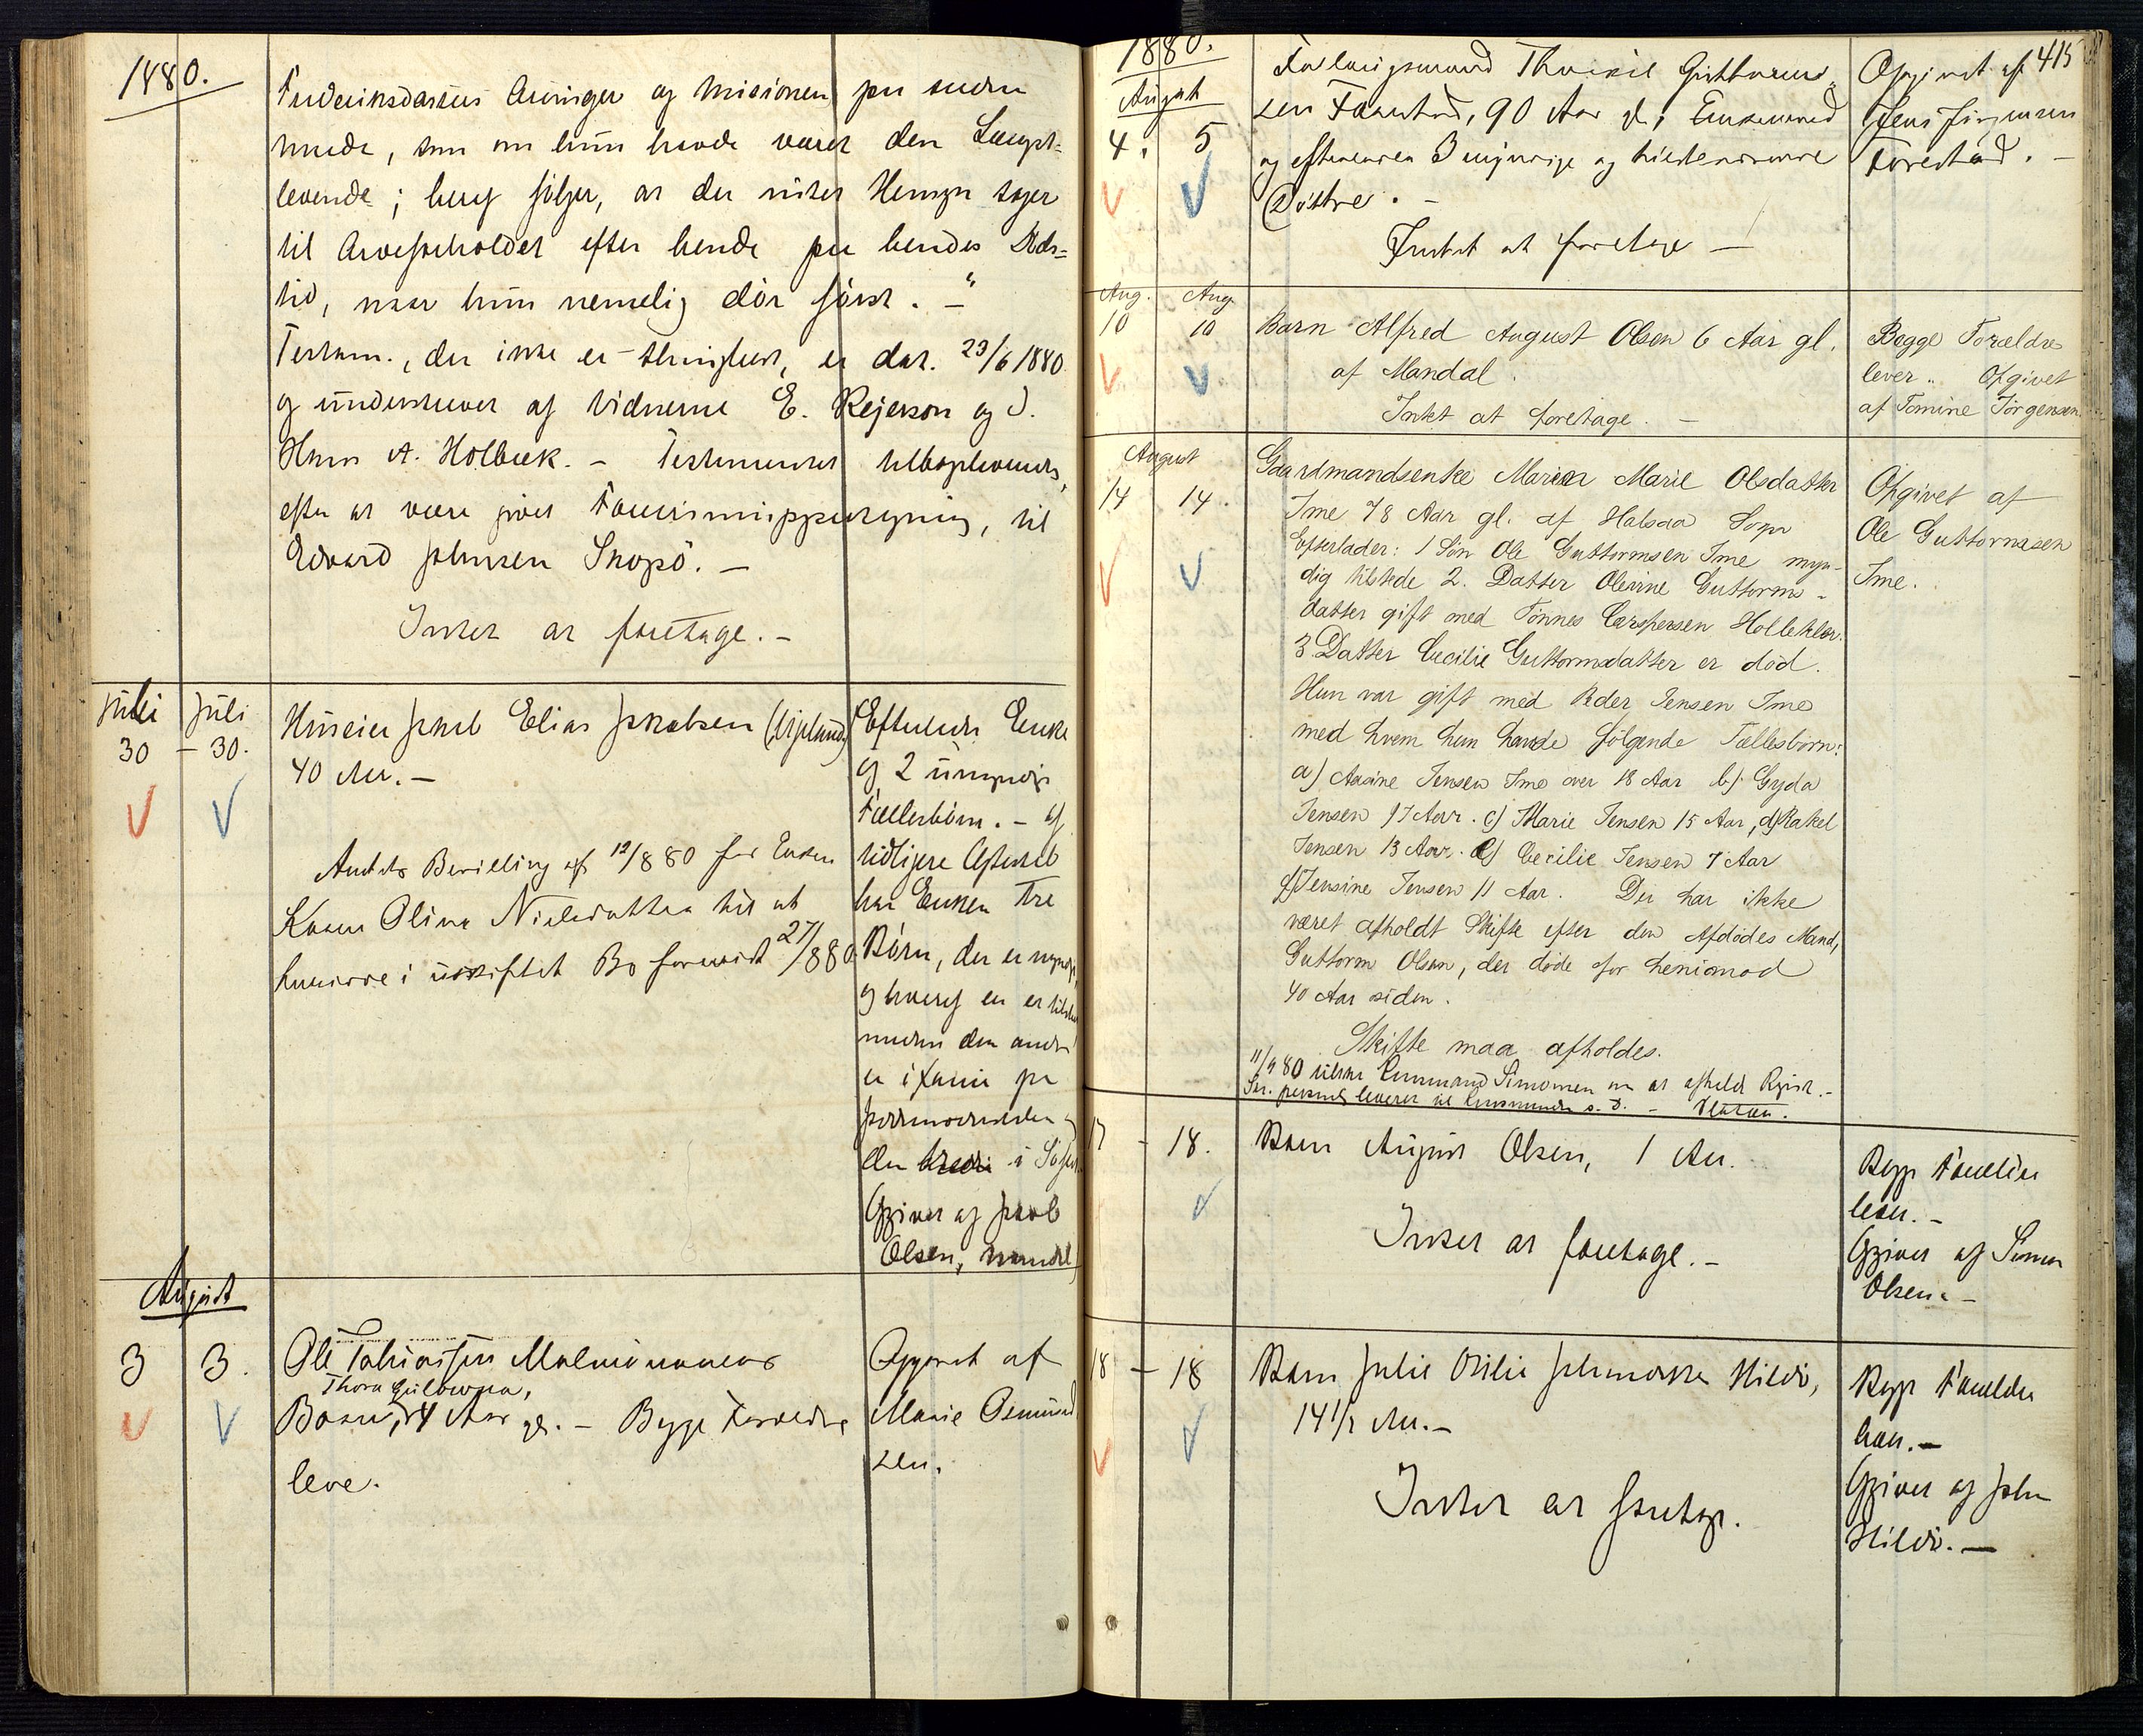 1880.
Frederiksdatters Arvinger og Missionen paa anden
Maade, som om hun havde været den Længst-
levende; heraf følger, at der intet Hensyn tages
til Arveforholdet efter hende paa hendes Døds-
tid, naar hun nemlig dør først. –"
Testam., der ikke er thinglæst, er dat. 23/6 1880
og underskrevet af Vidnerne E. Rejerson og J.
Hans A. Holbæk. – Testamentet tilbageleveredes,
efter at være givet Foreviisningspaategning, til
Edvard Johnsen Skopø. –
Intet at foretage. –
Juli Juli
30 – 30.
Huseier Jakob Elias Jakobsen
40 Aar. –
Amtets Bevilling af 12/8 80 for Enken
Karen Oline Nielsdatter til at
hensidde i uskiftet Bo forevist 27/8 80.
Efterlader Enke
og 2 umyndige
Fællesbørn. – Af
tidligere Ægteskab
har Enken tre
Børn, der er myndige,
og hvoraf en er tilstede
medens den anden
er i
den i
Opgivet af Jakob
Olsen, Mandal
August
3 3.
Ole Tobiassen Malmø
Thora Gulowna,
Barn, 4 Aar gl. – Begge Forældre
leve.
Opgivet af
Marie Osmund-
sen.
415
1880.
August
4. 5
Guttorm-
sen Faarstad, 90 Aar gl., Enkemand
og efterlader 3 myndige og tilstedeværende
Døttre. –
Intet at foretage –
Opgivet af
Jens Jørgensen
Forestad. –
Aug. Aug.
10 10
Barn Alfred August Olsen 6 Aar gl.
af Mandal.
Intet at foretage. –
Begge Forældre
lever. Opgivet
af Tomine Jörgensen
August
14 14.
Gaardmandsenke Maren Marie Olsdatter
Ime 78 Aar gl. af Halsaa Sogn
Efterlader: 1 Sön Ole Guttormsen Ime myn-
dig tilstede 2. Datter Olevine Guttorms-
datter gift med Tönnes Caspersen Hollekler.
3 Datter Cecilie Guttormsdatter er död.
Hun var gift med Peder Jensen Ime
med hvem hun havde fölgende Fællesbörn:
a) Aasine Jensen Ime over 18 Aar b) Gyda
Jensen 17 Aar. c) Marie Jensen 15 Aar, d) Rakel
Jensen 13 Aar. e) Cecilie Jensen 7 Aar
f) Jensine Jensen 11 Aar. Der har ikke
været afholdt Skifte efter den Afdödes Mand,
Guttorm Olsen, der döde for henimod
40 Aar siden.
Skifte maa afholdes.
11/9 80 tilskr. Lensmand Simonsen om at afholde Registr. –
leveret til Lensmanden s. D. –
Opgivet af
Ole Guttormsen
Ime.
17 – 18.
Barn August Olsen, 1 Aar.
Intet at foretage. –
Begge Forældre
lever. –
Opgivet af Simon
Olsen. –
18 – 18
Barn Julie Otilie Johnsdatter Hildø,
14 1/2 Aar. –
Intet at foretage.
Begge Forældre
lever. –
Opgivet af John
Hildø. –